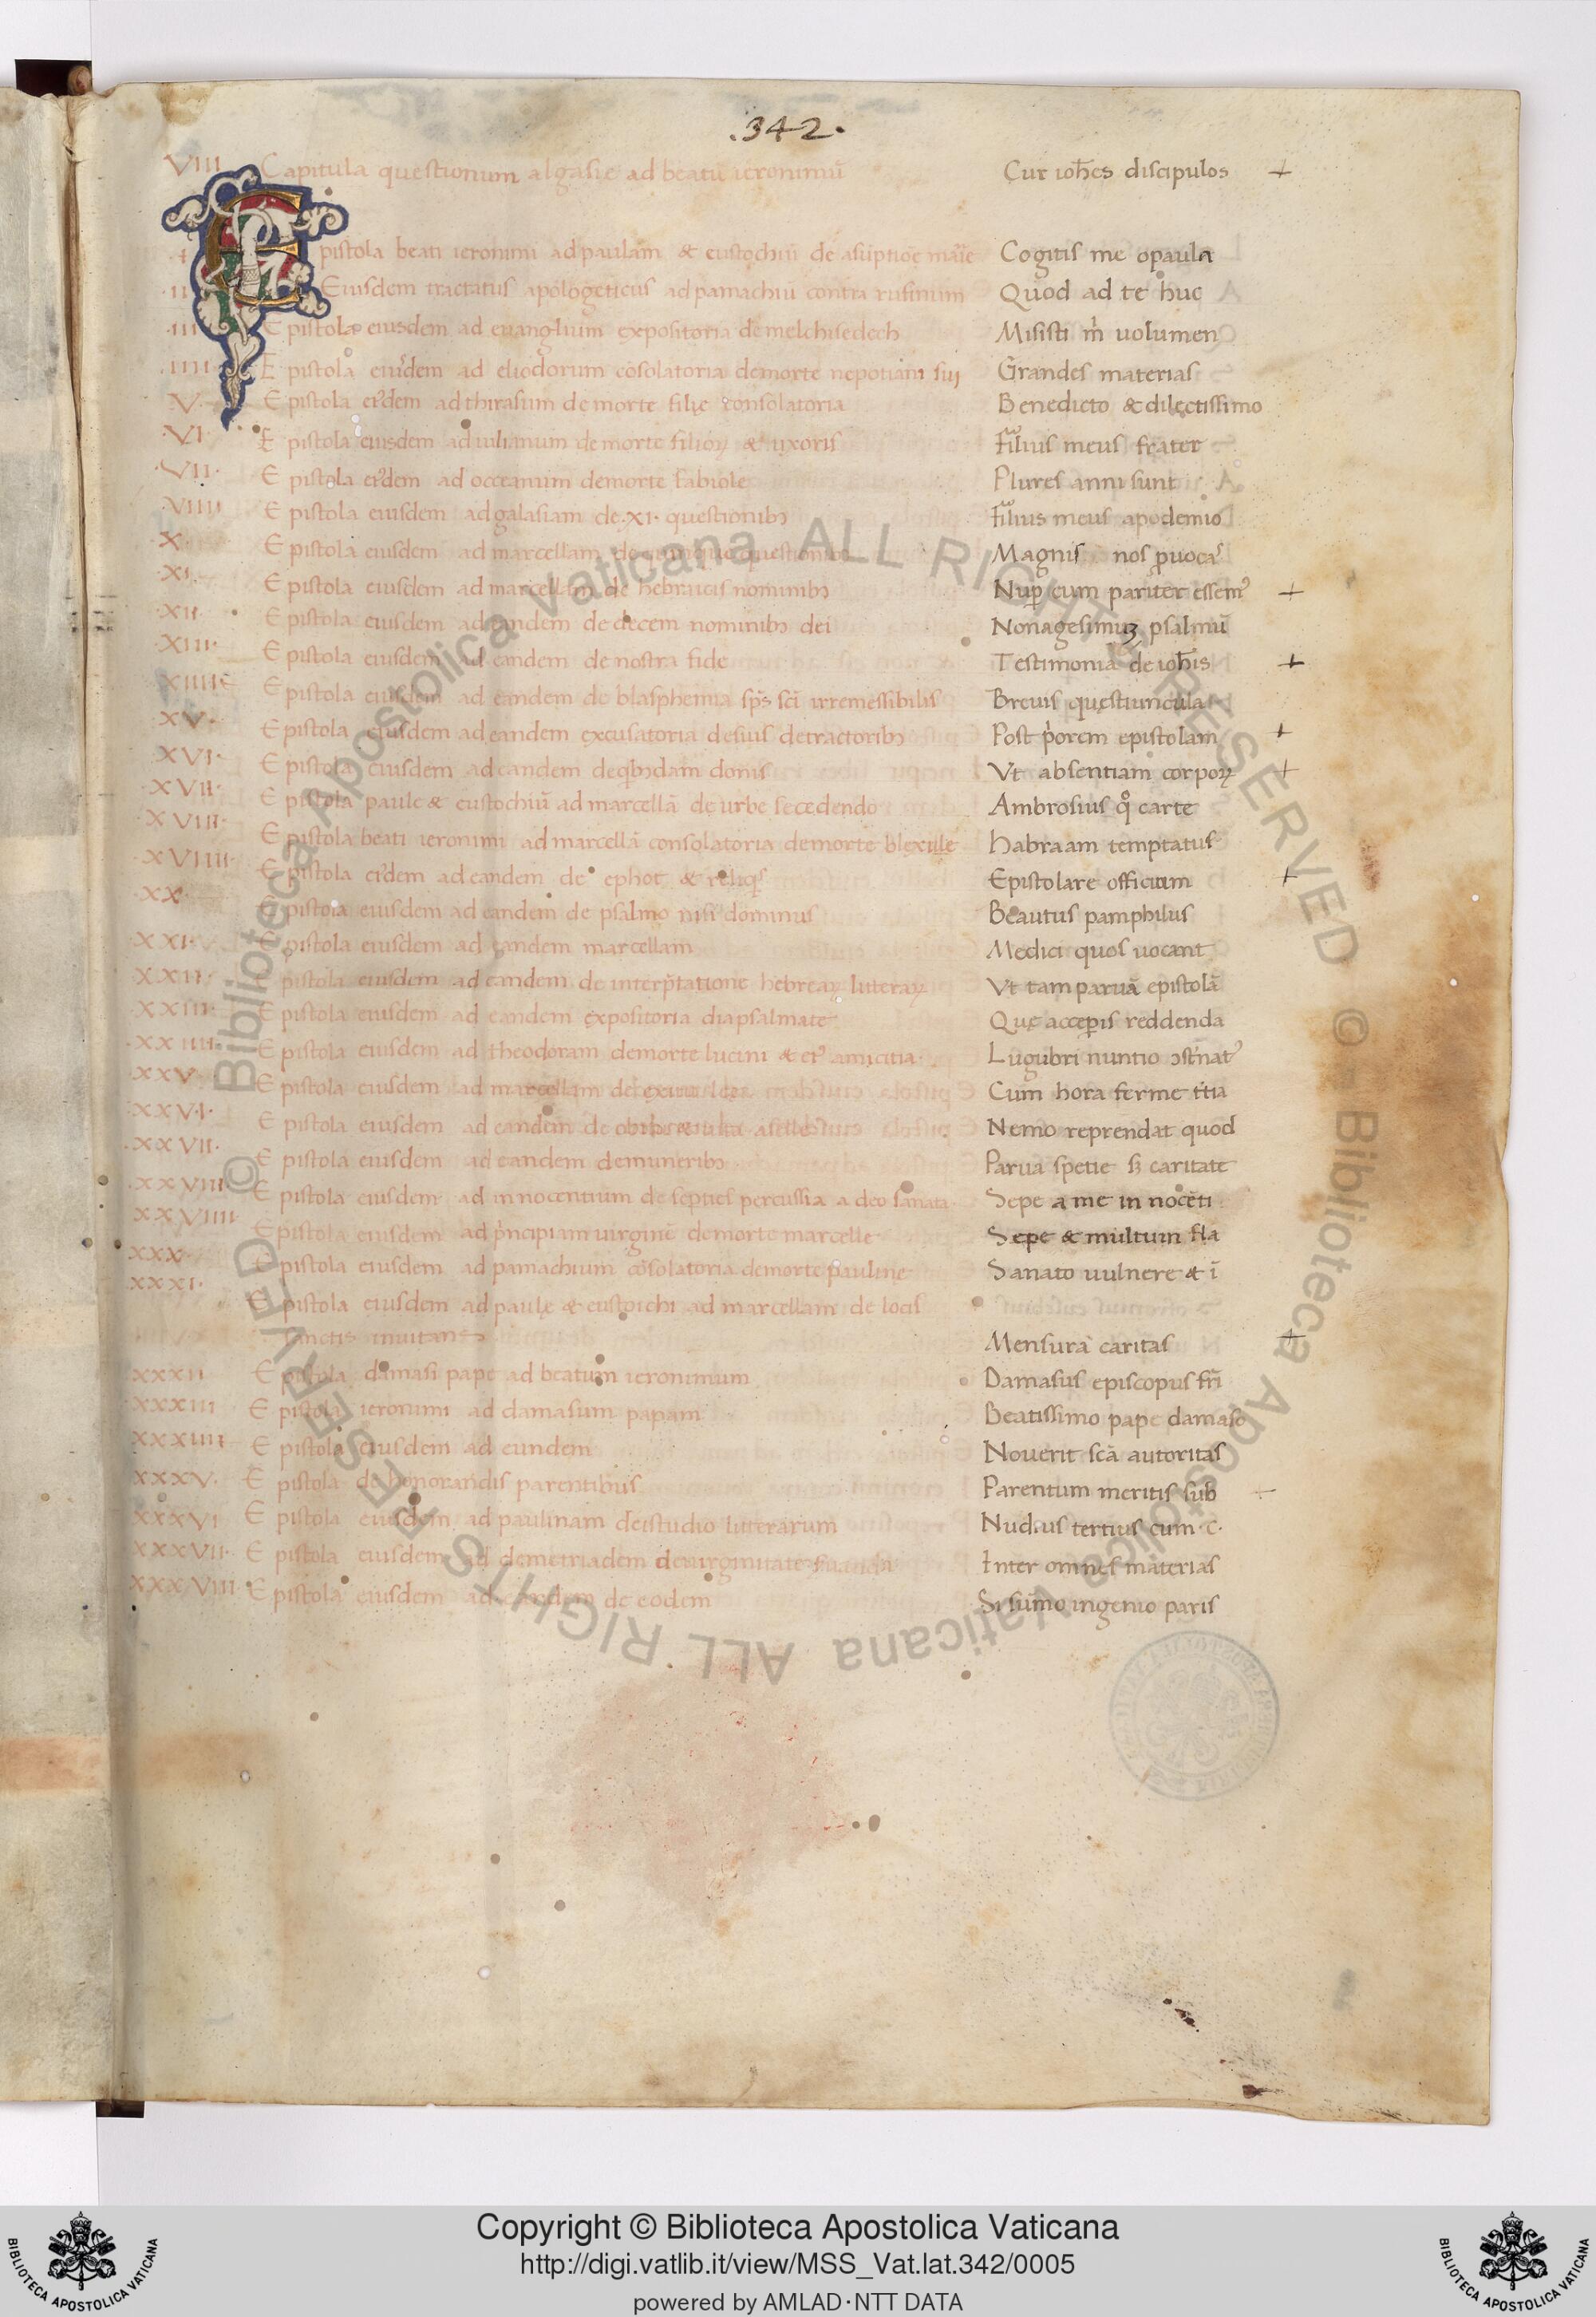 .342.
VIII Capitula questionum algasie ad beatū ieronimū Cur ioh̄es discipulos +
I Epistola beati ieronimi ad paulam & eustochiū de asūptioe marie Cogitis me o paula
II Eiusdem tractatus apologeticus ad pamachiū contra rufinum Quod ad te huc
III Epistola eiusdem ad euanglium expositoria de melchisedech Misisti m̄ uolumen
IIII Epistola eiusdem ad eliodorum cōsolatoria de morte nepotiani sui Grandes materias
V Epistola eiꝰdem ad thirasium de morte filie consolatoria Benedicto & dilectissimo
VI Epistola eiusdem ad iulianum de morte filioꝝ & uxoris Filius meus frater
VII Epistola eiꝰdem ad occeanum de morte fabiole Plures anni sunt
VIIII Epistola eiusdem ad galasiam de XI questionibꝫ Filius meus apodemio
X Epistola eiusdem ad marcellam de quinque questionibꝫ Magnis nos ꝓuocas
XI Epistola eiusdem ad marcellam de hebraicis nominibꝫ Nuꝑ cum pariter essemꝰ +
XII Epistola eiusdem ad eandem de decem nominibꝫ dei Nonagesimuꝫ psalmū
XIII Epistola eiusdem ad eandem de nostra fide Testimonia de ioh̄is +
XIIII Epistola eiusdem ad eandem de blasphemia sp̄s sc̄i irremessibilis Breuis questiuncula
XV Epistola eiusdem ad eandem excusatoria de suis detractoribꝫ Post p'orem epistolam +
XVI Epistola eiusdem ad eandem de qbꝫdam donis Vt absentiam corpoꝝ +
XVII Epistola paule & eustochiū ad marcellā de urbe secedendo Ambrosius q̊ carte
XVIII Epistola beati ieronimi ad marcellā consolatoria de morte blexille Habraam temptatus
XVIIII Epistola eiꝰdem ad eandem de ephot & reliqꝫ Epistolare officium +
XX Epistola eiusdem ad eandem de psalmo nisi dominus Beautus pamphilus
XXI Epistola eiusdem ad eandem marcellam Medici quos uocant
XXII Epistola eiusdem ad eandem de interp̄tatione hebreaꝝ litteraꝝ Vt tam paruā epistolā
XXIII Epistola eiusdem ad eandem expositoria diapsalmate Que acceꝑis reddenda
XXIIII Epistola eiusdem ad theodoram de morte lucini & eiꝰ amicitia Lugubri nuntio ↄst'natꝰ
XXV Epistola eiusdem ad marcellam de exitu lee Cum hora ferme t'tia
XXVI Epistola eiusdem ad eandem de Nemo reprendat quod
XXVII Epistola eiusdem ad eandem de muneribꝫ Parua spetie sꝫ caritate
XXVIII Epistola eiusdem ad innocentium de septies percussia a deo sanata Sepe a me innocēti
XXVIIII Epistola eiusdem ad p'ncipiam uirginē de morte marcelle Sepe & multum fla
XXX Epistola eiusdem ad pamachium cōsolatoria de morte pauline Sanato uulnere & ī
XXXI Epistola eiusdem ad paule & eustoichi ad marcellam de locis
sanctis inuitans Mensura caritas +
XXXII Epistola damasi pape ad beatum ieronimum Damasus episcopus fr̄i
XXXIII Epistola ieronimi ad damasum papam Beatissimo pape damaso
XXXIIII Epistola eiusdem ad eundem Nouerit sc̄a autoritas
XXXV Epistola de honorandis parentibus Parentum meritis sub +
XXXVI Epistola eiusdem ad paulinam de istudio litterarum Nudius tertius cum c.
XXXVII Epistola eiusdem ad demetriadem de uirginitate Inter omnes materias
XXXVIII Epistola eiusdem ad eandem de eodem Si sūmo ingenio paris
© Biblioteca Apostolica Vaticana ALL RIGHTS RESERVED © Biblioteca Apostolica Vaticana ALL RIGHTS RESERVED
Copyright © Biblioteca Apostolica Vaticana
http://digi.vatlib.it/view/MSS_Vat.lat.342/0005
powered by AMLAD·NTT DATA
BIBLIOTECA APOSTOLICA VATICANA
BIBLIOTECA APOSTOLICA VATICANA